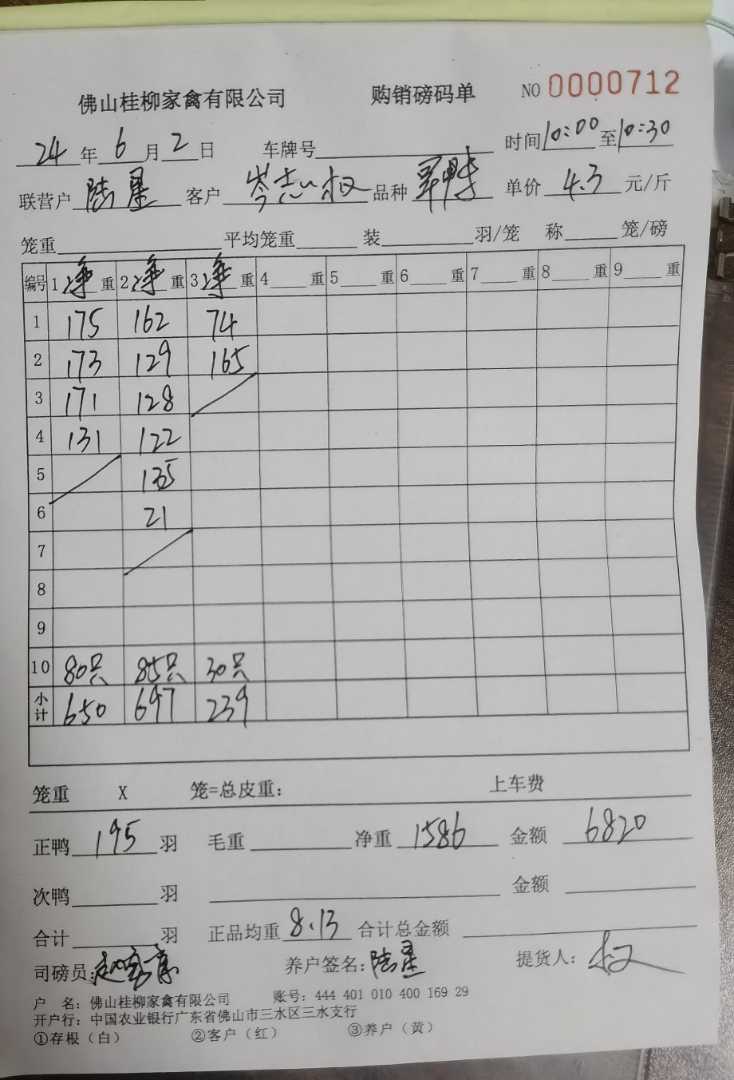 佛山桂柳家禽有限公司 购销磅码单 NO 0000712
24年6月2日 车牌号 时间10:00至10:30
联营户 陆星 客户 岑志权 品种 单价 4.3 元/斤
笼重 平均笼重 装 羽/笼 称 笼/磅
编号 1净重 2净重 3净重 4 重 5 重 6 重 7 重 8 重 9 重
1 175 162 74
2 173 129 165
3 171 128
4 131 122
5 135
6 21
7
8
9
10 80只 85只 30只
小计 650 697 239
笼重 X 笼=总皮重: 上车费
正鸭 195 羽 毛重 净重 1586 金额 6820
次鸭 羽 金额
合计 羽 正品均重 8.13 合计总金额
司磅员: 养户签名: 陆星 提货人: 权
户 名: 佛山桂柳家禽有限公司 账号: 444 401 010 400 169 29
开户行: 中国农业银行广东省佛山市三水区三水支行
①存根（白） ②客户（红） ③养户（黄）